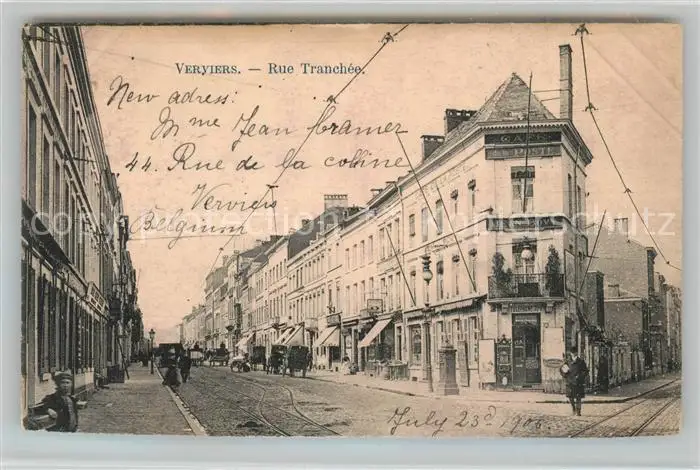 VERVIERS. — Rue Tranchée.
New adress:
Mme Jean Cramer
44. Rue de la colline
Verviers
Belgium
CAFÉ
July 23d 1906.